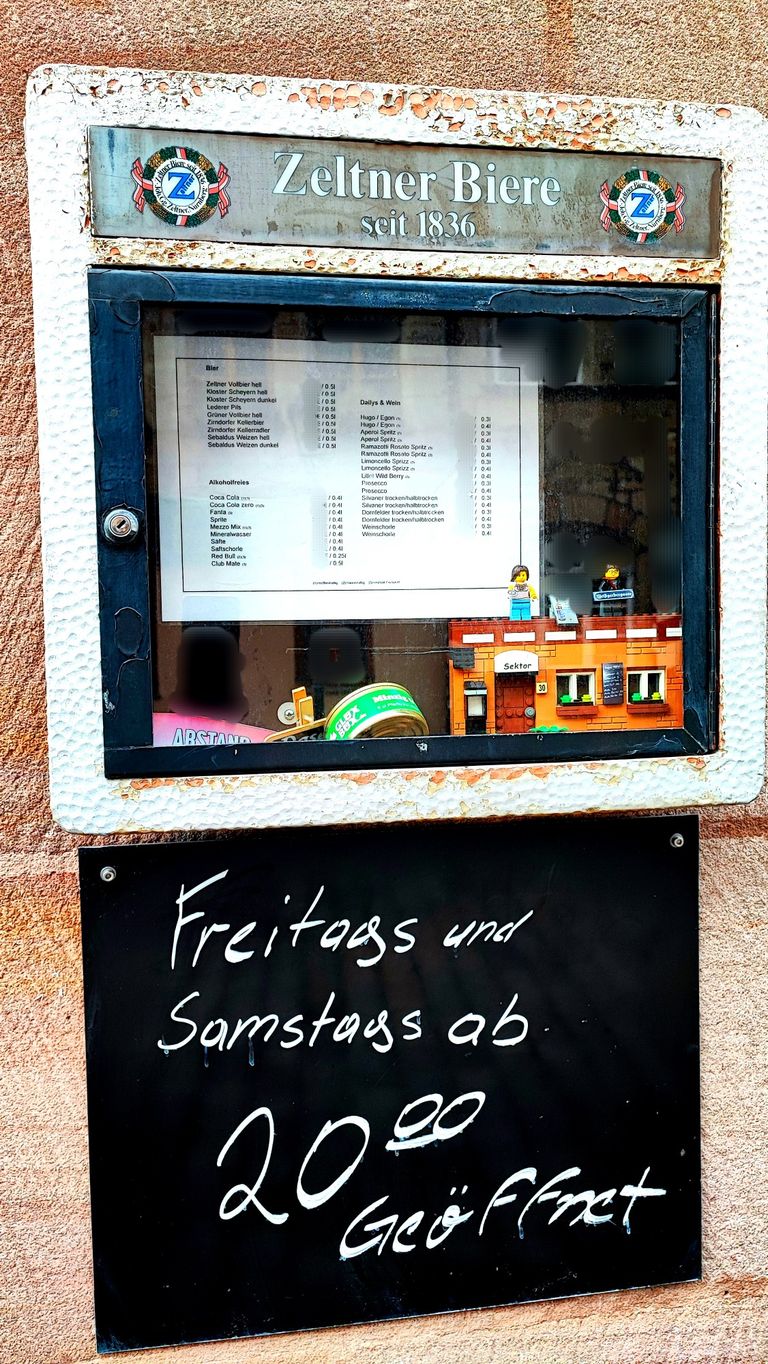 Zeltner Biere
seit 1836
Bier
Zeltner Vollbier hell / 0.5l
Kloster Scheyern hell / 0.5l
Kloster Scheyern dunkel / 0.5l
Lederer Pils / 0.5l
Grüner Vollbier hell / 0.5l
Zirndorfer Kellerbier / 0.5l
Zirndorfer Kellerradler / 0.5l
Sebaldus Weizen hell / 0.5l
Sebaldus Weizen dunkel / 0.5l
Alkoholfreies
Coca Cola / 0.4l
Coca Cola zero / 0.4l
Fanta / 0.4l
Sprite / 0.4l
Mezzo Mix / 0.4l
Mineralwasser / 0.4l
Säfte / 0.4l
Saftschorle / 0.4l
Red Bull / 0.25l
Club Mate / 0.5l
Dailys & Wein
Hugo / Egon / 0.3l
Hugo / Egon / 0.4l
Aperol Spritz / 0.3l
Aperol Spritz / 0.4l
Ramazotti Rosato Spritz / 0.3l
Ramazotti Rosato Spritz / 0.4l
Limoncello Sprizz / 0.3l
Limoncello Sprizz / 0.4l
Lillet Wild Berry / 0.4l
Prosecco
Prosecco
Silvaner trocken/halbtrocken
Silvaner trocken/halbtrocken
Dornfelder trocken/halbtrocken
Dornfelder trocken/halbtrocken
Weinschorle / 0.3l
Weinschorle / 0.4l
Sektor
30
ABSTAND
Freitags und
Samstags ab
20 00
Geöffnet